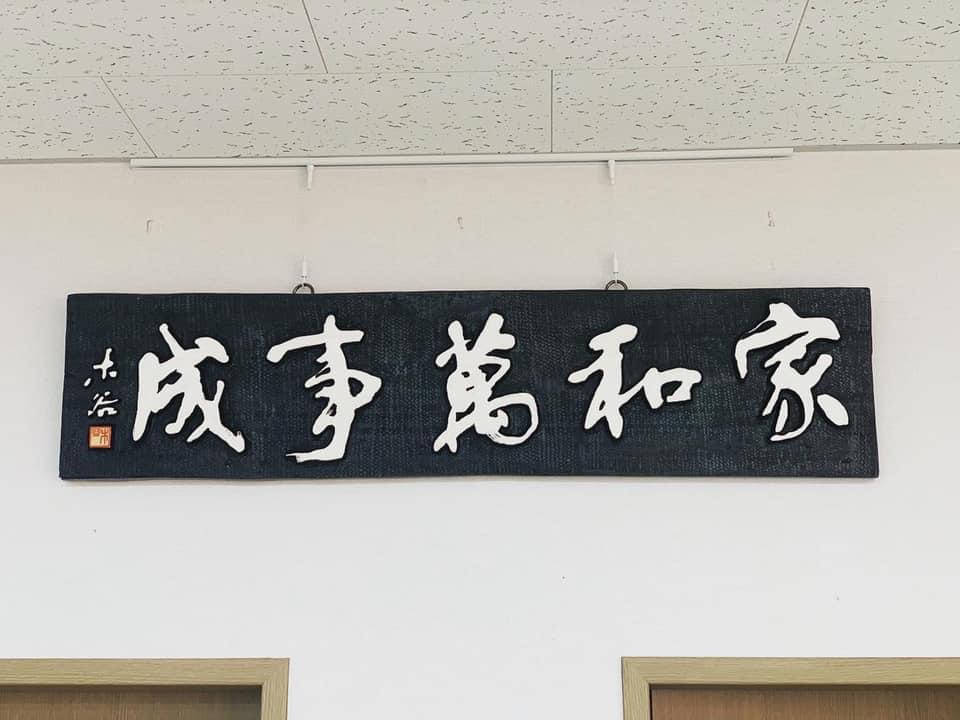 家和萬事成
木谷